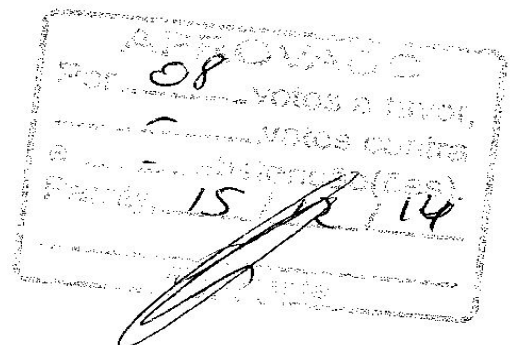 APROVADO
Por 08 votos a favor,
- votos contra
e - abstenção(ões)
15 / 12 / 14